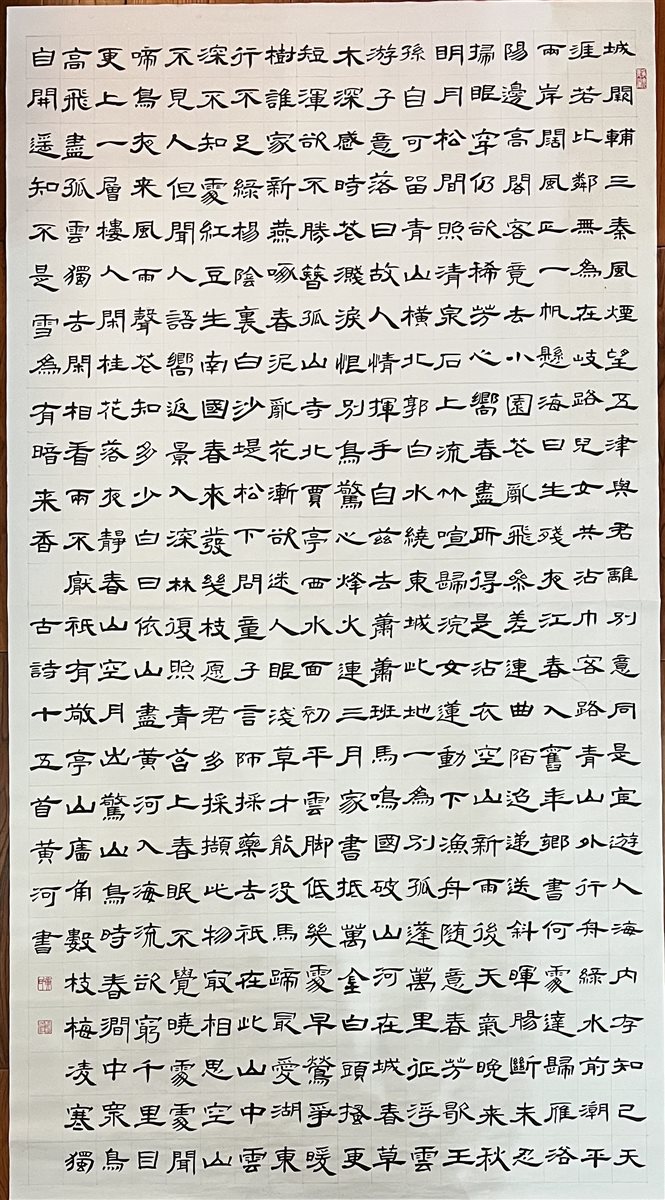 城闕輔三秦風煙望五津與君離別意同是宦遊人海内存知己天
涯若比鄰無為在岐路兒女共沾巾客路青山外行舟綠水前潮平
兩岸闊風正一帆懸海日生殘夜江春入舊年鄉書何處達歸雁洛
陽邊高閣客竟去小園花亂飛參差連曲陌迢递送斜暉腸斷未忍
掃眼穿仍欲稀芳心嚮春盡所得是沾衣空山新雨後天氣晚来秋
明月松間照清泉石上流竹喧歸浣女蓮動下漁舟随意春芳歇王
孫自可留青山橫北郭白水繞東城此地一為別孤蓬萬里征浮雲
游子意落日故人情揮手自兹去蕭蕭班馬鳴國破山河在城春草
木深感時花濺淚恨別鳥驚心烽火連三月家書抵萬金白頭搔更
短渾欲不勝簪孤山寺北賈亭西水面初平雲脚低幾處早鶯爭暖
樹誰家新燕啄春泥亂花漸欲迷人眼淺草才能没馬蹄冣愛湖東
行不足綠楊陰裏白沙堤松下問童子言師採藥去祇在此山中雲
深不知處紅豆生南國春來發幾枝愿君多採擷此物冣相思空山
不見人但聞人語嚮返景入深林復照青苔上春眠不覺曉處處聞
啼鳥夜来風雨聲花知多少白日依山盡黃河入海流欲窮千里目
更上一層樓人閑桂花落夜靜春山空月出驚山鳥時春澗中衆鳥
高飛盡孤雲獨去閑相看兩不厭祇有敬亭山廬角數枝梅凌寒獨
自開遥知不是雪為有暗来香 古詩十五首黄河書